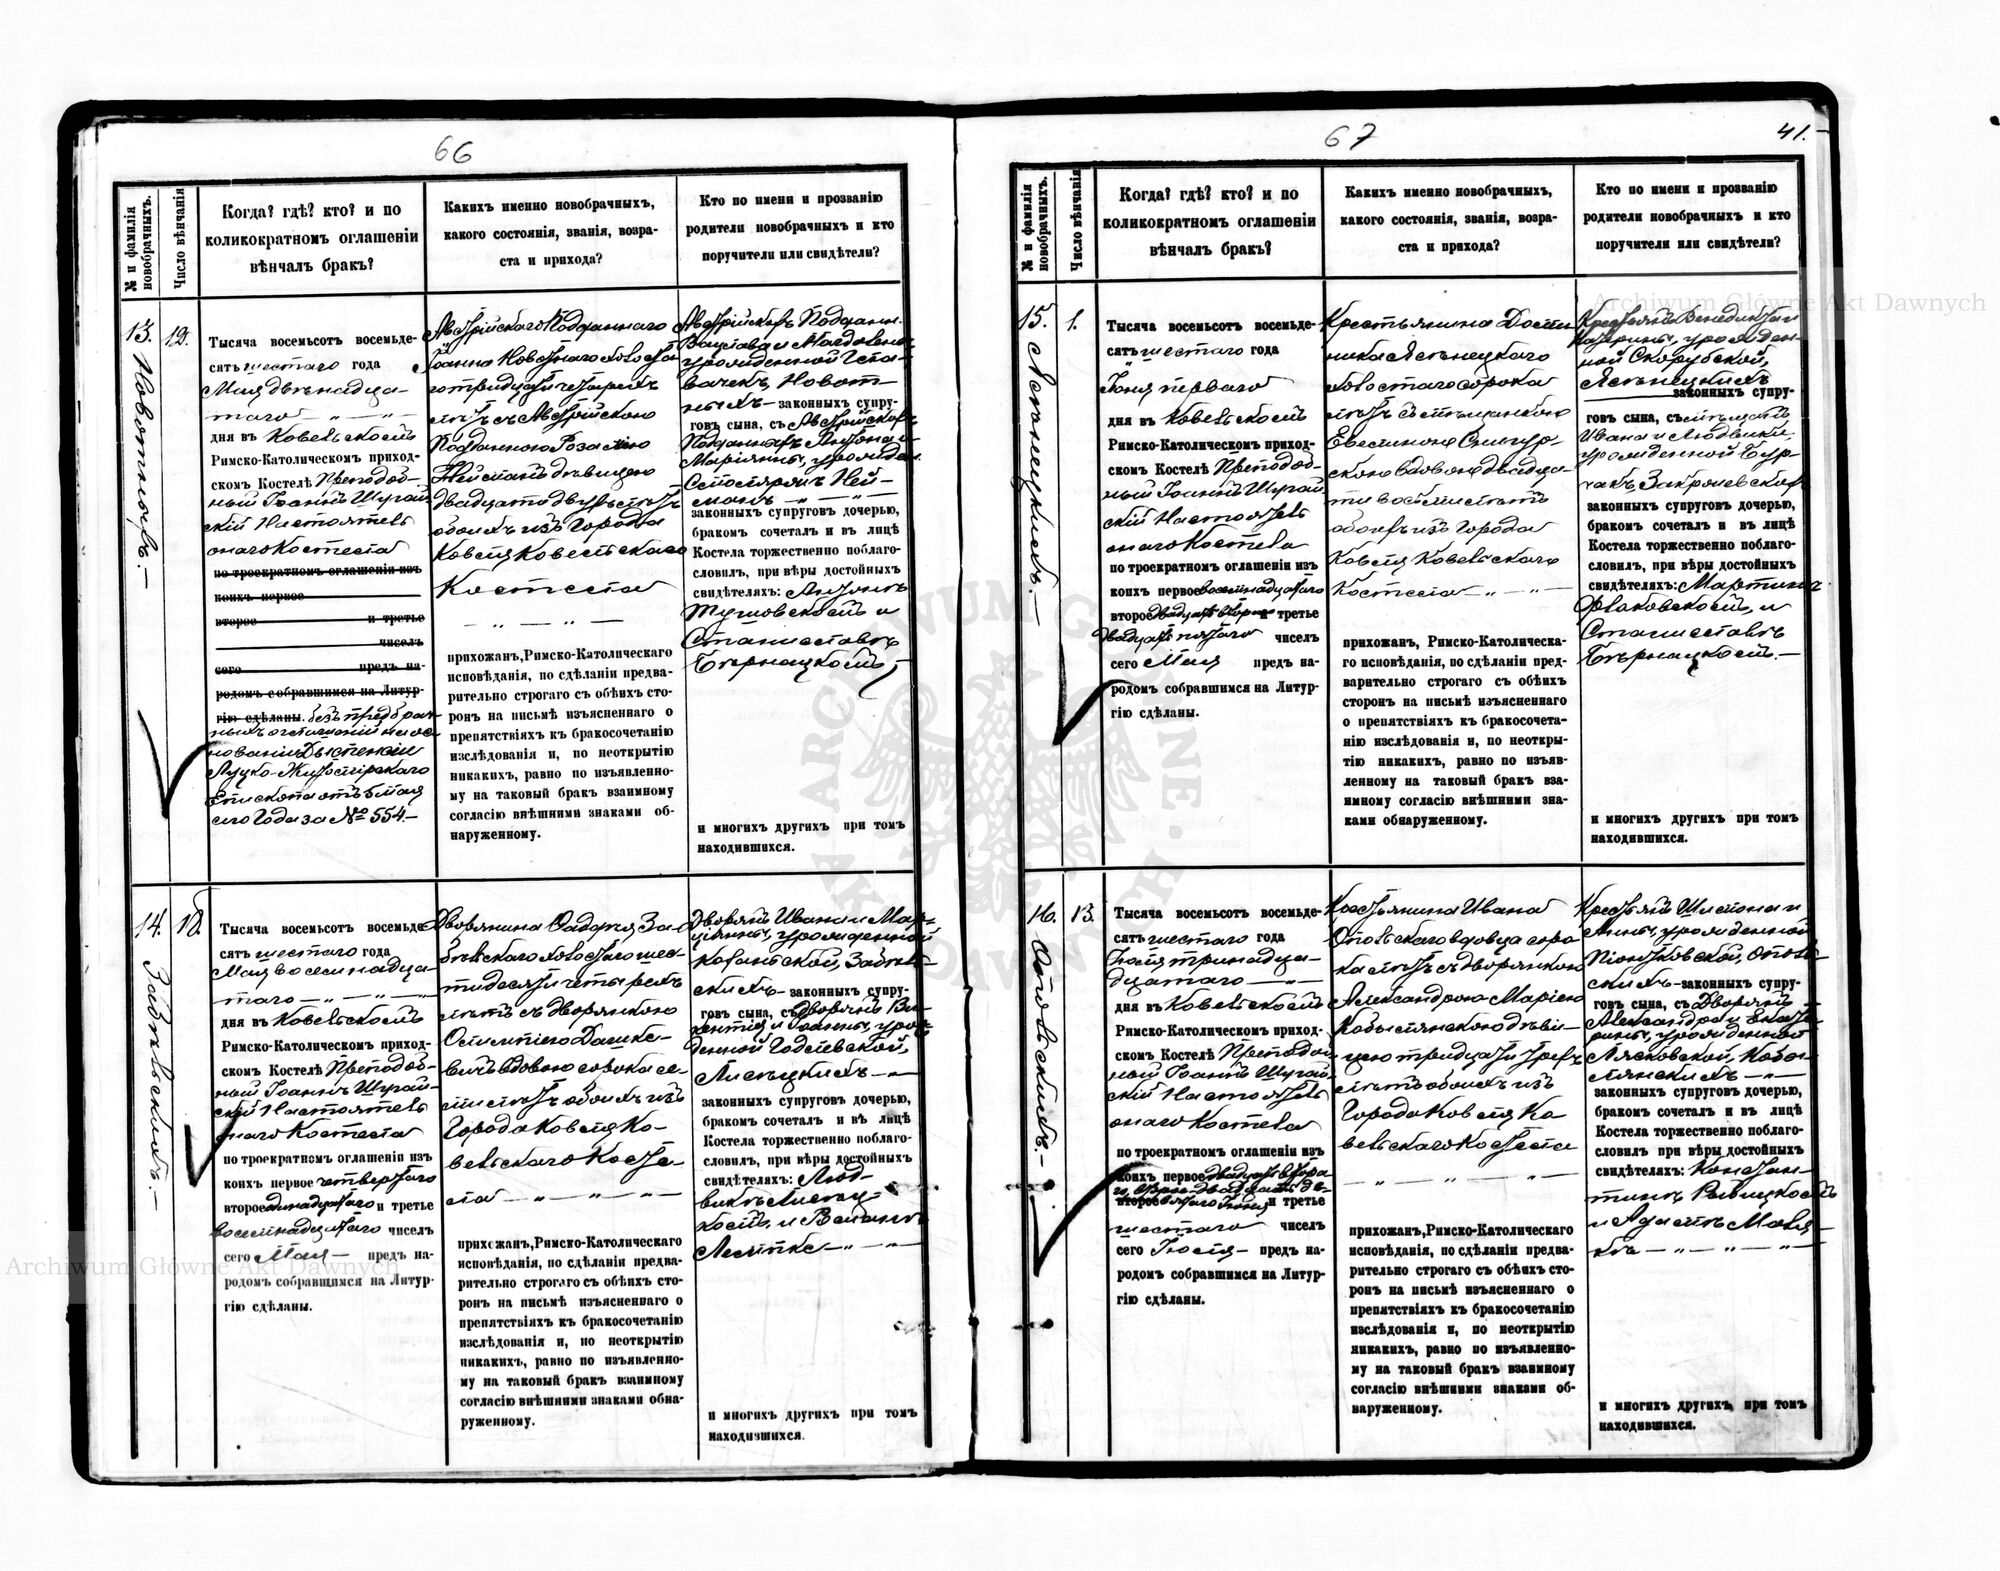 66
№ и фамилія новобрачныхъ.
Число вѣнчанія
Когда? гдѣ? кто? и по
коликократномъ оглашеніи
вѣнчалъ бракъ?
Какихъ именно новобрачныхъ,
какого состоянія, званія, возра-
ста и прихода?
Кто по имени и прозванію
родители новобрачныхъ и кто
поручители или свидѣтели?
13.
12.
Тысяча восемьсотъ восемьде-
сятъ шестаго года
Мая двѣнадца-
таго
дня въ Ковельскомъ
Римско-Католическомъ приход-
скомъ Костелѣ Преподоб-
ный Іоаннъ Шугай-
скій Настоятель
онаго Костела
по троекратномъ оглашеніи изъ
коихъ первое
второе и третье
чиселъ
сего предъ на-
родомъ собравшимся на Литур-
гію сдѣланы. безъ предбрач-
ныхъ оглашеній на ос-
нованіи Диспензіи
Луцко-Житомірскаго
Епископа отъ 6 мая
сего года за № 554.
Австрійскаго Подданнаго
Іоанна Новотнаго холоста-
го тридцати четырехъ
лѣтъ съ Австрійскою
Подданною Розаліею
Нейманъ дѣвицею
двадцати двухъ лѣтъ
обоихъ изъ Города
Ковля Ковельскаго
Костела
прихожанъ, Римско-Католическаго
исповѣданія, по сдѣланіи предва-
рительно строгаго съ обѣихъ сто-
ронъ на письмѣ изъясненнаго о
препятствіяхъ къ бракосочетанію
изслѣдованія и, по неоткрытію
никакихъ, равно по изъявленно-
му на таковый бракъ взаимному
согласію внѣшними знаками об-
наруженному.
Австрійскихъ Поддан.
Вацлава и Магдалены
урожденной
Новот-
ныхъ законныхъ супру-
говъ сына, съ Австрійскихъ
Подданныхъ Антона и
Маріянны, урожден.
Ней-
манъ
законныхъ супруговъ дочерью,
бракомъ сочеталъ и въ лицѣ
Костела торжественно поблаго-
словилъ, при вѣры достойныхъ
свидѣтеляхъ: Антонѣ
и
Станиславѣ
Бѣрнацкомъ
и многихъ другихъ при томъ
находившихся.
14.
18.
Тысяча восемьсотъ восемьде-
сятъ шестаго года
Мая восемнадца-
таго
дня въ Ковельскомъ
Римско-Католическомъ приход-
скомъ Костелѣ Преподоб-
ный Іоаннъ Шугай-
скій Настоятель
онаго Костела
по троекратномъ оглашеніи изъ
коихъ первое четвертаго
второе одинадцатаго и третье
восемнадцатаго чиселъ
сего Мая предъ на-
родомъ собравшимся на Литур-
гію сдѣланы.
Дворянина За-
бѣльскаго холостаго шес-
тидесяти четырехъ
лѣтъ съ дворянкою
вдовою сорока се-
ми лѣтъ обоихъ изъ
Города Ковля Ко-
вельскаго Косте-
ла
прихожанъ, Римско-Католическаго
исповѣданія, по сдѣланіи предва-
рительно строгаго съ обѣихъ сто-
ронъ на письмѣ изъясненнаго о
препятствіяхъ къ бракосочетанію
изслѣдованія и, по неоткрытію
никакихъ, равно по изъявленно-
му на таковый бракъ взаимному
согласію внѣшними знаками обна-
руженному.
Дворянъ Ивана и Мар-
ціянны, урожденной
Забѣль-
скихъ законныхъ супру-
говъ сына, съ Дворянъ Ви-
кентія и Іоанны, урож-
денной
законныхъ супруговъ дочерью,
бракомъ сочеталъ и въ лицѣ
Костела торжественно поблаго-
словилъ, при вѣры достойныхъ
свидѣтеляхъ: Люд-
викѣ
и
и многихъ другихъ при томъ
находившихся.
67
41.
№ и фамилія новобрачныхъ.
Число вѣнчанія
Когда? гдѣ? кто? и по
коликократномъ оглашеніи
вѣнчалъ бракъ?
Какихъ именно новобрачныхъ,
какого состоянія, званія, возра-
ста и прихода?
Кто по имени и прозванію
родители новобрачныхъ и кто
поручители или свидѣтели?
15.
1.
Тысяча восемьсотъ восемьде-
сятъ шестаго года
Іюня перваго
дня въ Ковельскомъ
Римско-Католическомъ приход-
скомъ Костелѣ Преподоб-
ный Іоаннъ Шугай-
скій Настоятель
онаго Костела
по троекратномъ оглашеніи изъ
коихъ первое восемнадцатаго
второе двадцать втораго и третье
двадцать пятаго чиселъ
сего Мая предъ на-
родомъ собравшимся на Литур-
гію сдѣланы.
Крестьянина Доми-
ника
холостаго сорока
лѣтъ съ мѣщанкою
вдовою двадца-
ти восьми лѣтъ
обоихъ изъ Города
Ковля Ковельскаго
Костела
прихожанъ, Римско-Католическа-
го исповѣданія, по сдѣланіи пред-
варительно строгаго съ обѣихъ
сторонъ на письмѣ изъясненнаго
о препятствіяхъ къ бракосочета-
нію изслѣдованія и, по неоткры-
тію никакихъ, равно по изъяв-
ленному на таковый бракъ вза-
имному согласію внѣшними зна-
ками обнаруженному.
Крестьянъ Венедикта и
Катерины, урожден-
ной Скорубской,
законныхъ супру-
говъ сына, съ мѣщанъ
Ивана и Людвики,
урожденной
законныхъ супруговъ дочерью,
бракомъ сочеталъ и въ лицѣ
Костела торжественно поблаго-
словилъ, при вѣры достойныхъ
свидѣтеляхъ: Мартинѣ
и
Станиславѣ
Бѣрнацкомъ.
и многихъ другихъ при томъ
находившихся.
16.
13.
Опольскихъ.
Тысяча восемьсотъ восемьде-
сятъ шестаго года
Іюля тринадца-
дцатаго
дня въ Ковельскомъ
Римско-Католическомъ приход-
скомъ Костелѣ Преподоб-
ный Іоаннъ Шугай-
скій Настоятель
онаго Костела
по троекратномъ оглашеніи изъ
коихъ первое
второе Іюня и третье
шестаго чиселъ
сего Іюля предъ на-
родомъ собравшимся на Литур-
гію сдѣланы.
Крестьянина Ивана
Опольскаго вдовца соро-
ка лѣтъ съ дворянкою
Александрою Маріею
Кобылянскою дѣви-
цею тридцати трехъ
лѣтъ обоихъ изъ
Города Ковля Ко-
вельскаго Костела
прихожанъ, Римско-Католическаго
исповѣданія, по сдѣланіи предва-
рительно строгаго съ обѣихъ сто-
ронъ на письмѣ изъясненнаго о
препятствіяхъ къ бракосочетанію
изслѣдованія и, по неоткрытію
никакихъ, равно по изъявленно-
му на таковый бракъ взаимному
согласію внѣшними знаками об-
наруженному.
Крестьянъ Шимона и
Анны, урожденной
Піонтковской, Ополь-
скихъ законныхъ супру-
говъ сына, съ Дворянъ
Александра и Екате-
рины, урожденной
Лясковской, Кобы-
лянскихъ
законныхъ супруговъ дочерью,
бракомъ сочеталъ и въ лицѣ
Костела торжественно поблаго-
словилъ, при вѣры достойныхъ
свидѣтеляхъ: Констан-
тинѣ
и Адамѣ
и многихъ другихъ при томъ
находившихся.
Archiwum Główne Akt Dawnych
Archiwum Główne Akt Dawnych
ARCHIWUM GŁÓWNE AKT DAWNYCH